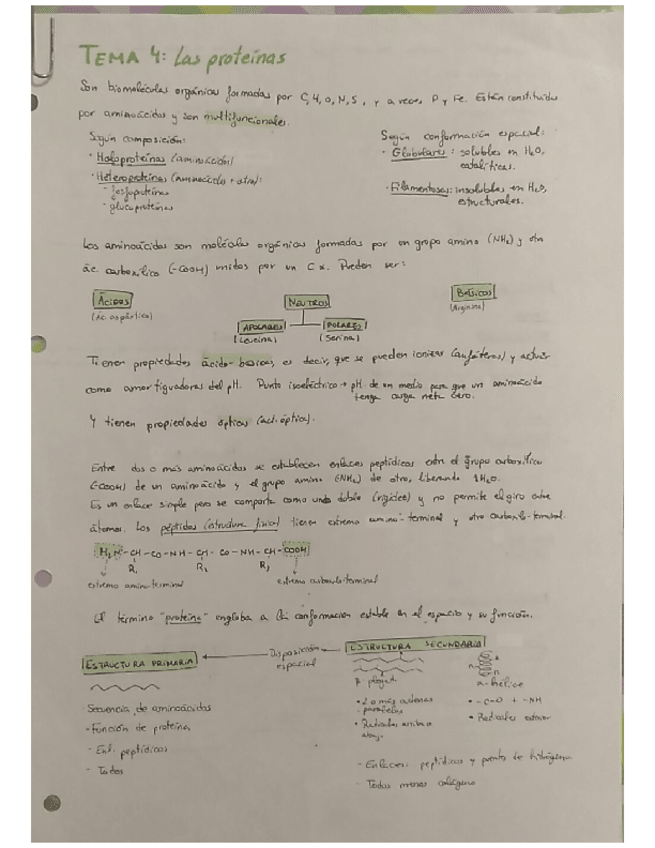 TEMA 4: Las proteínas
Son biomoléculas orgánicas formadas por C, H, O, N, S, y a veces P y Fe. Están constituidas
por aminoácidos y son multifuncionales.
Según composición:
· Holoproteínas (aminoácidos)
· Heteroproteínas (aminoácidos + otra):
- fosfoproteínas
- glucoproteínas
Según conformación espacial:
· Globulares: solubles en H2O,
catalíticas.
· Filamentosas: insolubles en H2O,
estructurales.
Los aminoácidos son moléculas orgánicas formadas por un grupo amino (NH2) y otro
ác. carboxílico (-COOH) unidos por un C α. Pueden ser:
ÁCIDOS NEUTROS BÁSICOS
(Ác. aspártico) (Arginina)
APOLARES POLARES
(Leucina) (Serina)
Tienen propiedades ácido-básicas, es decir, que se pueden ionizar (anfóteros) y actuar
como amortiguadores del pH. Punto isoeléctrico → pH de un medio para que un aminoácido
tenga carga neta cero.
Y tienen propiedades ópticas (act. óptica).
Entre dos o más aminoácidos se establecen enlaces peptídicos entre el grupo carboxílico
(-COOH) de un aminoácido y el grupo amino (NH2) de otro, liberando 1H2O.
Es un enlace simple pero se comporta como uno doble (rígidez) y no permite el giro entre
átomos. Los péptidos tienen extremo amino-terminal y otro carboxilo-terminal.
H2N-CH-CO-NH-CH-CO-NH-CH-COOH
R1 R2 R3
extremo amino terminal extremo carboxilo terminal
El término "proteína" engloba a la conformación estable en el espacio y su función.
ESTRUCTURA PRIMARIA Disposición espacial ESTRUCTURA SECUNDARIA
- Secuencia de aminoácidos
- Función de proteína
- Enl. peptídicos
- Todos
β plegada
· 2 o más cadenas
paralelas
· Radicales arriba o
abajo
α-hélice
· -C=O + -NH
· Radicales exterior
- Enlaces: peptídicos y puente de hidrógeno
- Todas menos colágeno